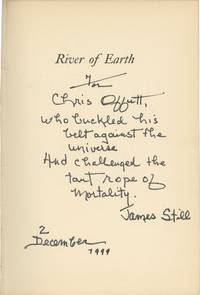 River of Earth
For
Chris Offutt,
who buckled his
belt against the
universe
And challenged the
taut rope of
Mortality.
James Still
2
December
1999